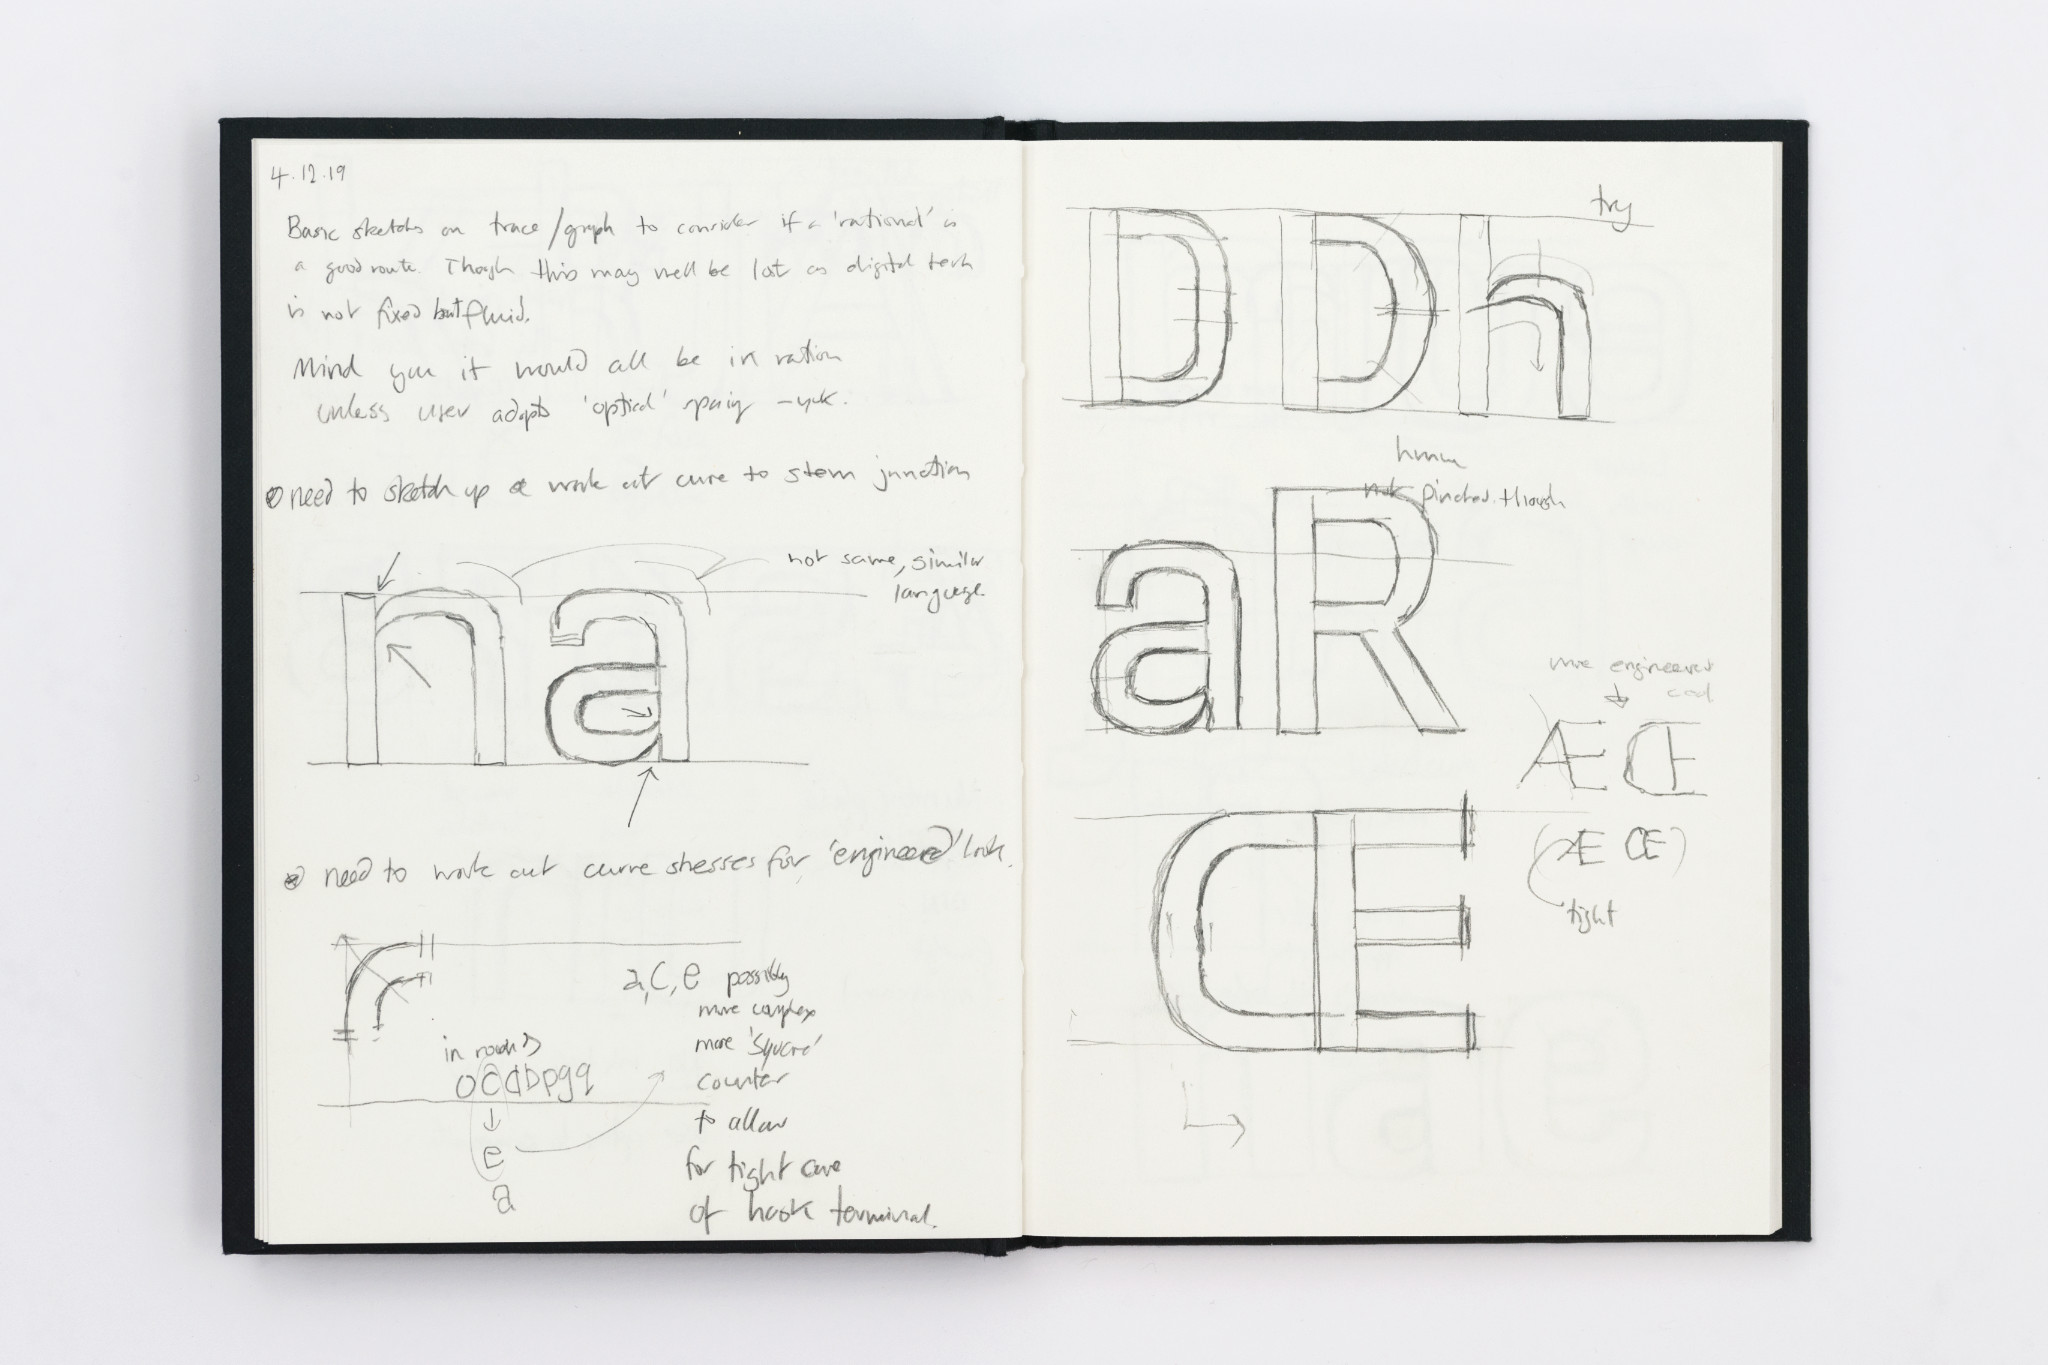 4.12.19
Basic sketches on trace/graph to consider if a 'rational' is
a good route. Though this may well be lost as digital tech
is not fixed but fluid.
Mind you it would all be in ration
unless user adopts 'optical' spacing - yuk.
need to sketch up & work out curve to stem junction
not same, similar
language
na
need to work out curve stresses for 'engineered' look.
in rounds
ocdbpgq
e
a
a, c, e possibly
more complex
more 'square'
counter
to allow
for tight curve
of hook terminal.
try
DDh
hmm
not pinched though
aR
more engineered
Æ Œ
(Æ Œ)
tight
Œ